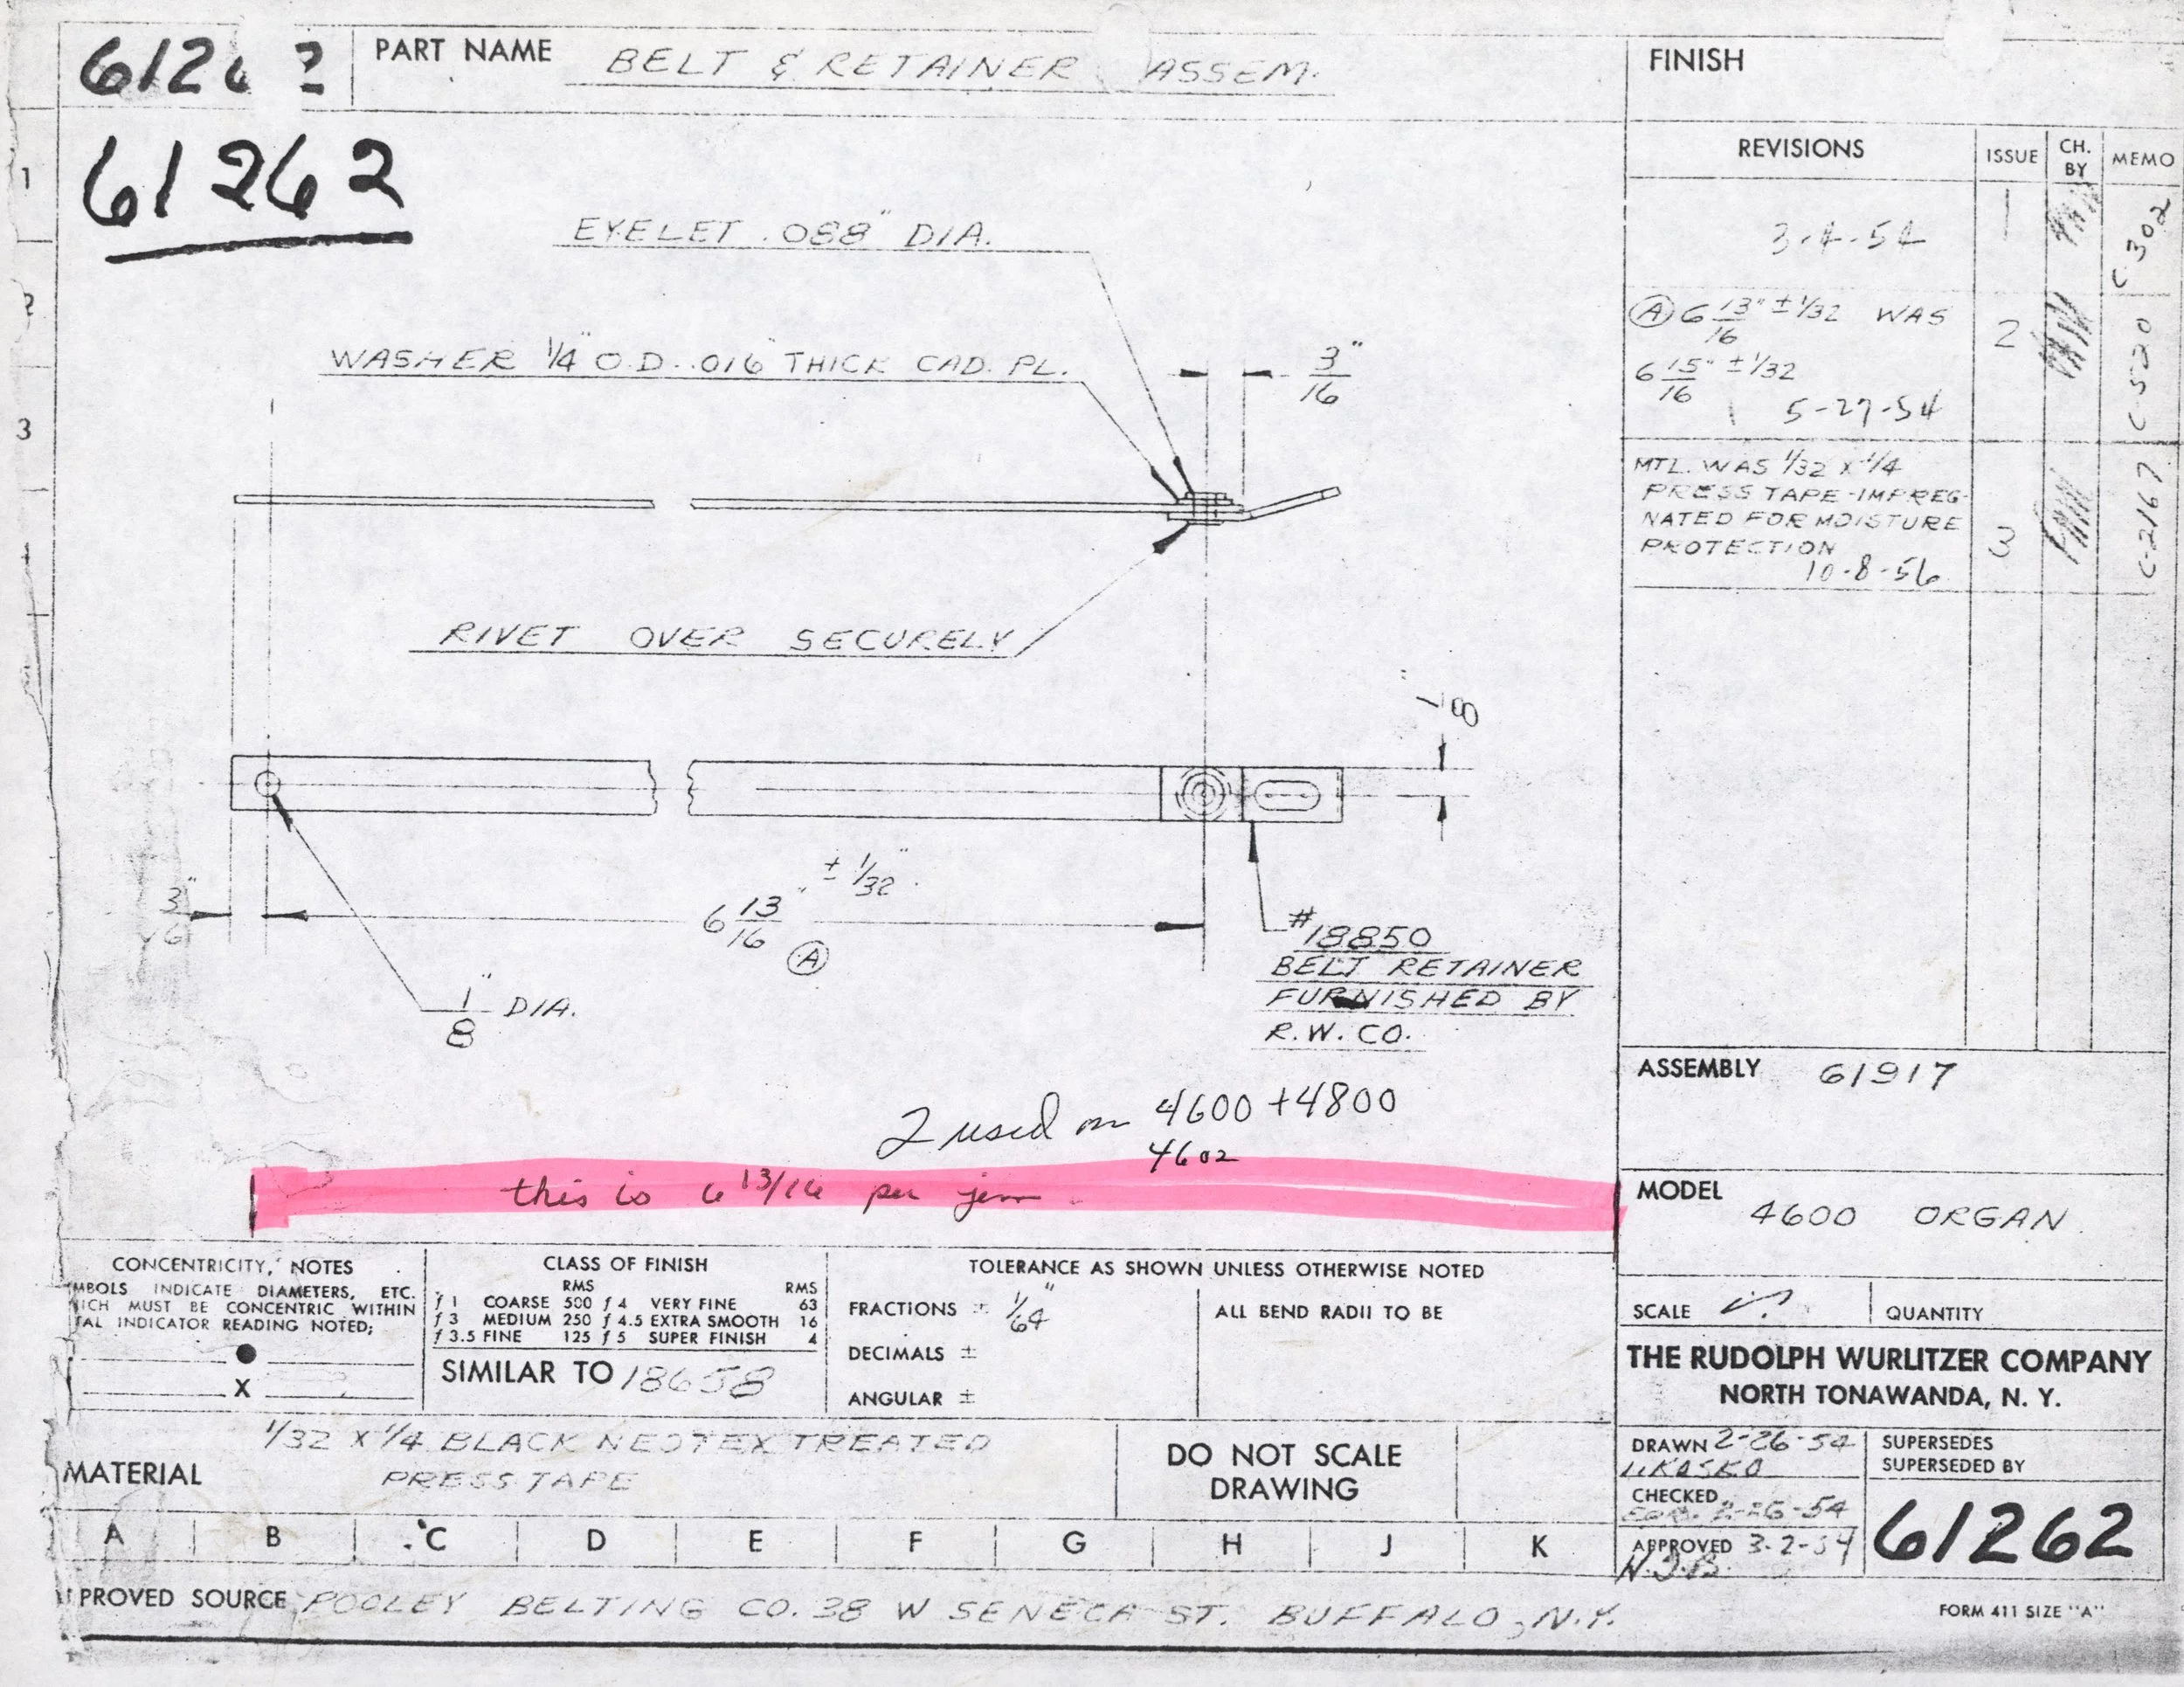 6126 2
PART NAME BELT & RETAINER ASSEM.
FINISH
61262
REVISIONS ISSUE CH. BY MEMO
3-4-54 1 C 302
Ⓐ 6 13/16" ±1/32 WAS
6 15/16" ±1/32
5-27-54 2 C-520
MTL. WAS 1/32 X 1/4
PRESS TAPE-IMPREG-
NATED FOR MOISTURE
PROTECTION
10-8-56 3 C-2167
1
2
3
EYELET .088" DIA.
WASHER 1/4" O.D. .016" THICK CAD. PL.
3/16"
RIVET OVER SECURELY
1/8"
± 1/32"
3/16"
6 13/16" Ⓐ
1/8" DIA.
#18850
BELT RETAINER
FURNISHED BY
R.W. CO.
2 used on 4600 + 4800
4602
this is 6 13/16 per
ASSEMBLY 61917
MODEL
4600 ORGAN
CONCENTRICITY, NOTES
MBOLS INDICATE DIAMETERS, ETC.
ICH MUST BE CONCENTRIC WITHIN
AL INDICATOR READING NOTED;
X
CLASS OF FINISH
RMS RMS
f 1 COARSE 500 f 4 VERY FINE 63
f 3 MEDIUM 250 f 4.5 EXTRA SMOOTH 16
f 3.5 FINE 125 f 5 SUPER FINISH 4
SIMILAR TO 18658
TOLERANCE AS SHOWN UNLESS OTHERWISE NOTED
FRACTIONS ± 1/64"
DECIMALS ±
ANGULAR ±
ALL BEND RADII TO BE
SCALE
QUANTITY
THE RUDOLPH WURLITZER COMPANY
NORTH TONAWANDA, N. Y.
MATERIAL 1/32 X 1/4 BLACK NEOTEX TREATED
PRESS TAPE
DO NOT SCALE
DRAWING
DRAWN 2-26-54
SUPERSEDES
SUPERSEDED BY
CHECKED 2-26-54
APPROVED 3-2-54
61262
A B C D E F G H J K
PROVED SOURCE POOLEY BELTING CO. 38 W SENECA ST. BUFFALO, N.Y.
FORM 411 SIZE "A"